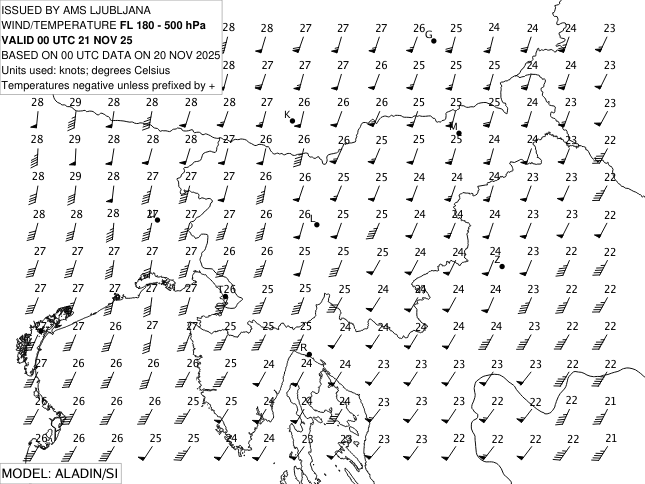 ISSUED BY AMS LJUBLJANA
WIND/TEMPERATURE FL 180 - 500 hPa
VALID 00 UTC 21 NOV 25
BASED ON 00 UTC DATA ON 20 NOV 2025
Units used: knots; degrees Celsius
Temperatures negative unless prefixed by +
28 28 27 27 27 26 25 24 24 24 23
G
28 27 27 27 26 25 25 25 24 24 23
28 28 28 28 28 28 27 26 26 26 25 25 25 24 23 23
K
M
28 29 28 28 28 27 26 26 26 25 25 25 24 24 23 22
28 29 28 27 27 27 26 26 25 25 24 24 24 23 23 22
28 28 28 27 27 27 26 26 25 25 24 24 24 23 23 22
L
27 27 27 27 27 26 26 25 25 25 24 24 24 23 22 22
Z
27 27 27 27 27 T 26 25 25 25 24 24 24 24 23 22 22
27 27 26 27 27 25 25 25 24 24 24 24 24 23 22 22
R
27 26 26 26 26 25 24 24 24 23 23 23 23 23 22 22
26 26 26 26 25 25 24 24 24 23 23 23 22 22 22 21
26 26 26 25 25 24 24 23 23 23 23 22 22 22 22 21
MODEL: ALADIN/SI